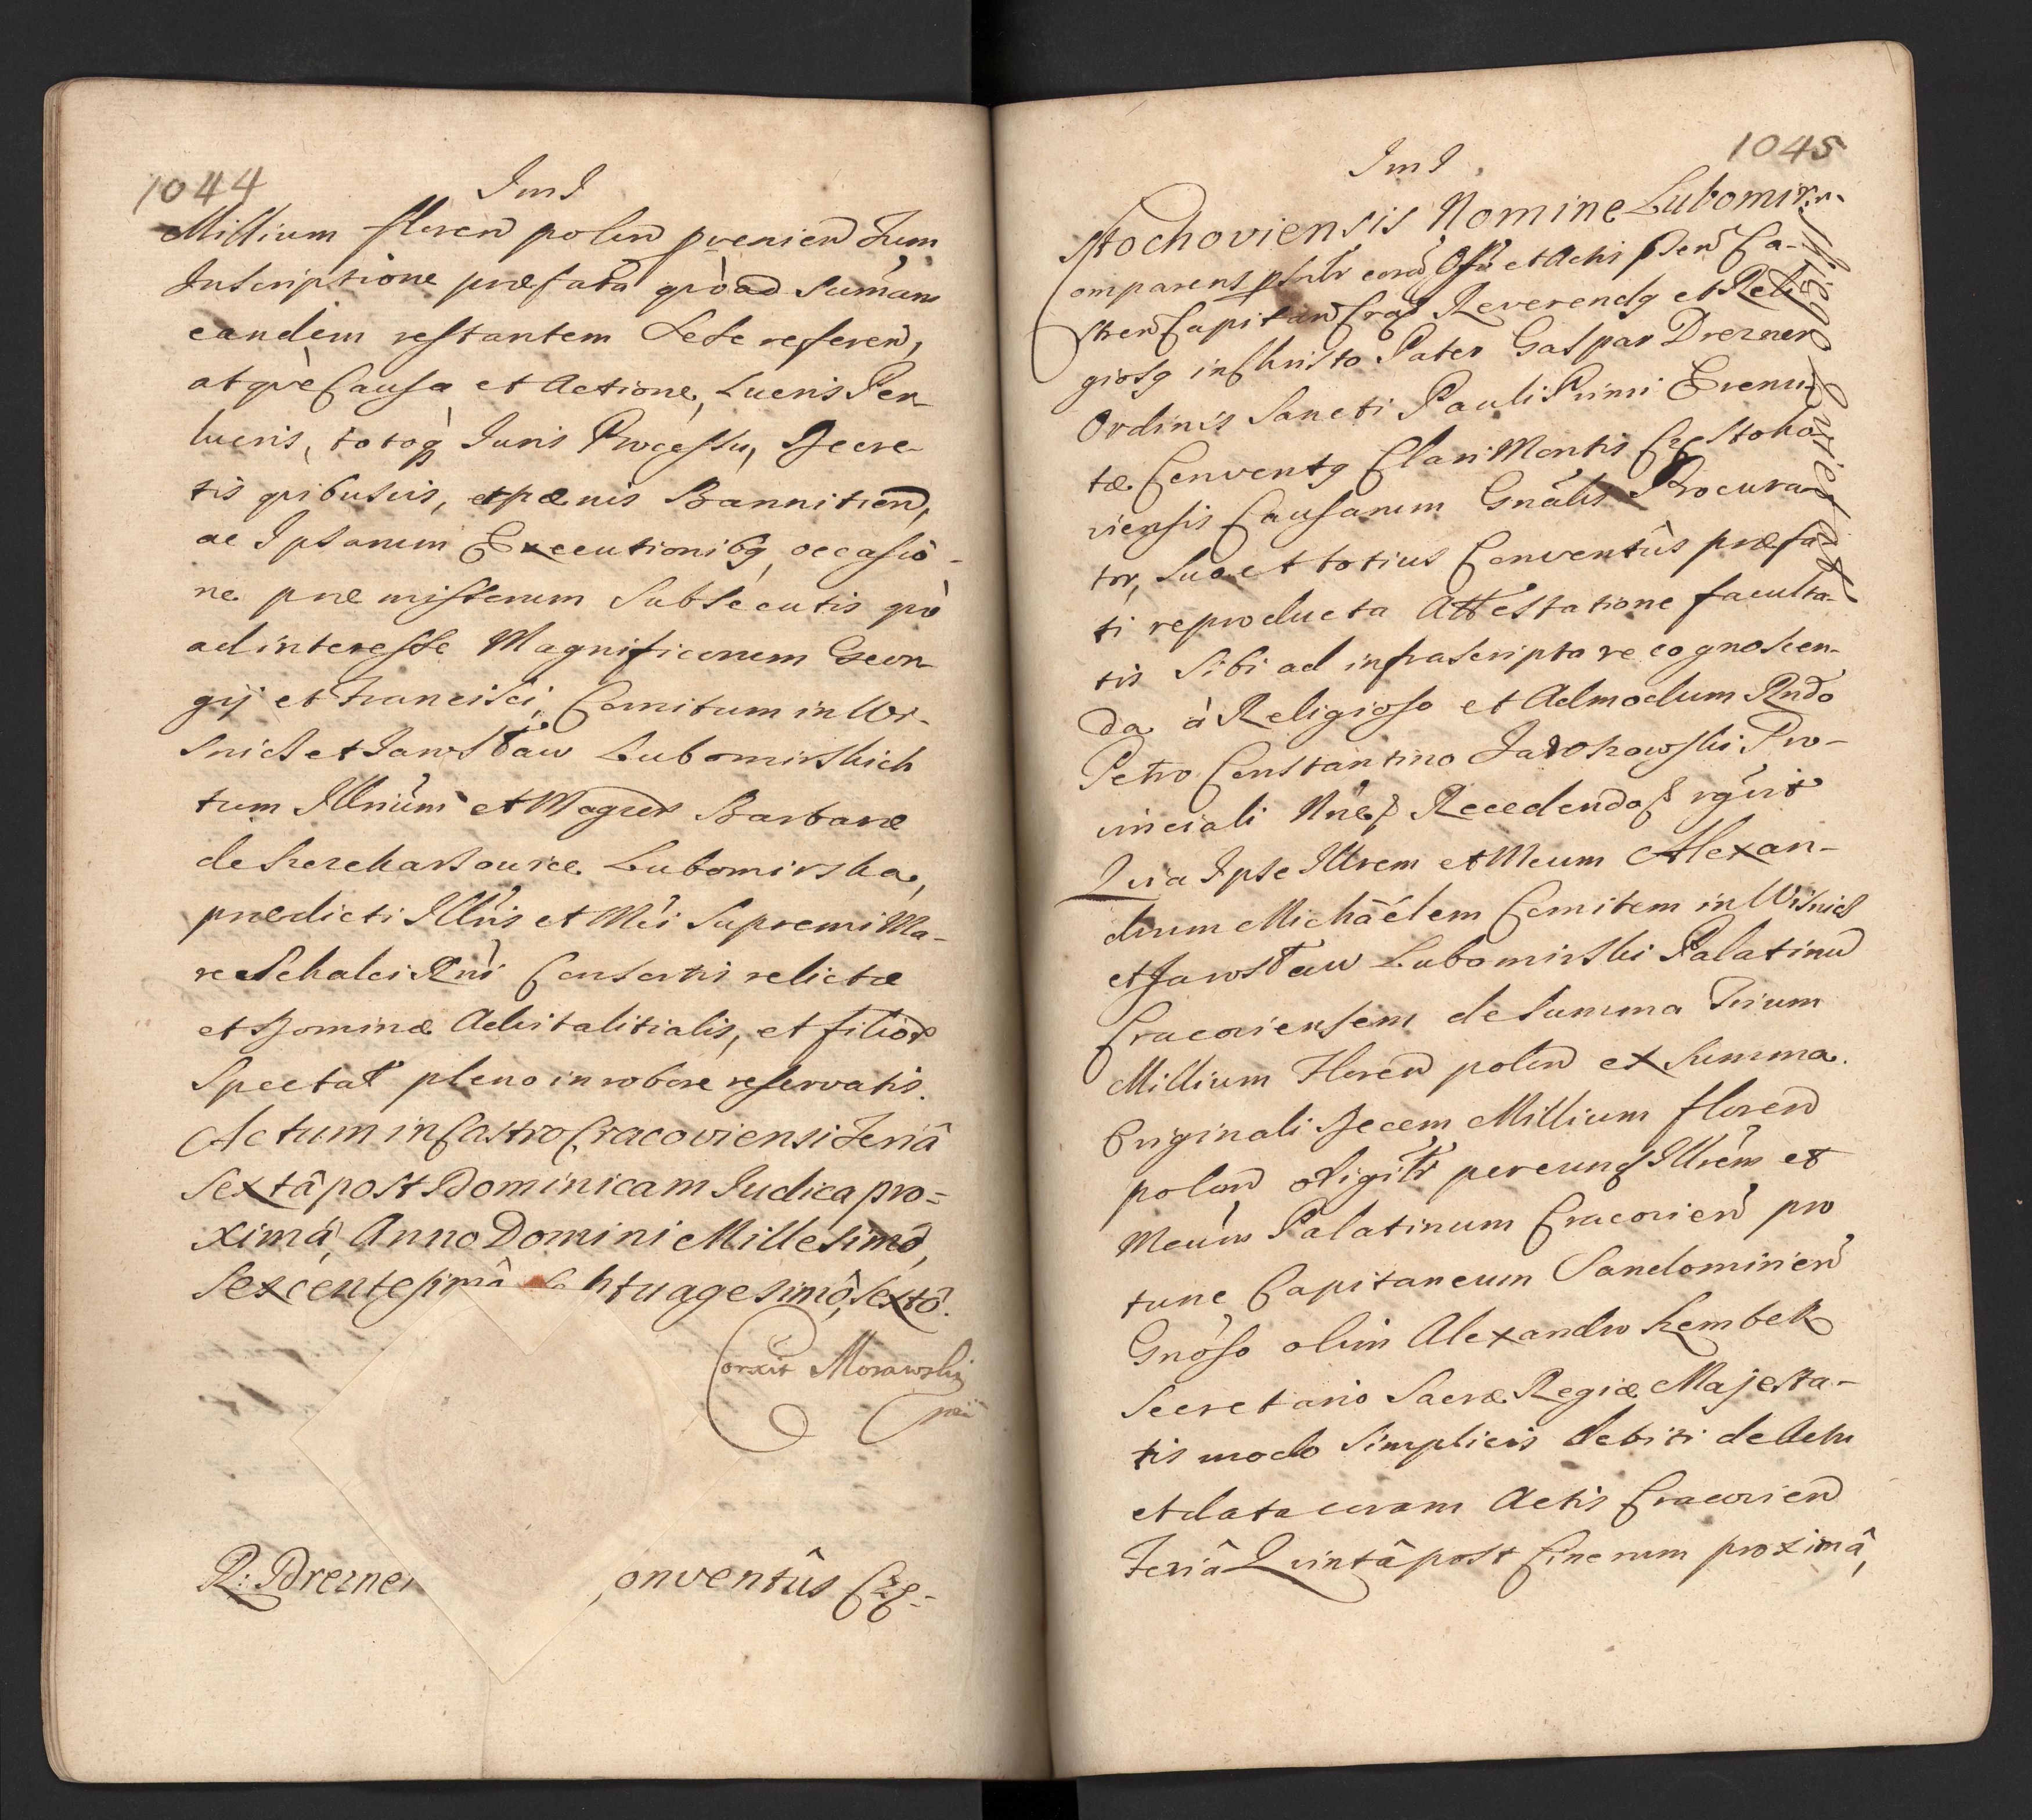 1044
ImJ
Millium floren polen provenien Tum
Inscriptione præfata quoad Summam
eandem restantem Sese referen,
atque Causa et Actione, Lucris Per-
lucris, totoq Juris Processu, Decre-
tis quibusvis, et pænis Bannitien,
ac Ipsarum Executionibq, occasio-
ne præmissorum Subsecutis quo
ad interesse Magnificorum Geor-
gij et Francisci, Comitum in Wi-
snicz et Jarosław Lubomirskich
tum Illrium et Magcæ Barbaræ
de Lubomirska,
prædicti Illris et Mci Supremi Ma-
reschalci Rni Consortis relictæ
et Dominæ Advitalitialis, et filior
Spectat pleno in robore reservatis.
Actum in Castro Cracoviensi Feriâ
Sextâ post Dominicam Judica pro-
ximâ, Anno Domini Millesimô,
Sexcentesimô tuagesimô, Sextô.
Corxit Morawski
mp
R: Drezner onventûs Czę-
1045
ImJ
stochoviensis Nomine Lubomir-
skiego Quietat
Comparens psnlr corã Offo et Actis psen Ca-
stren Capitan Crac Reverendq et Reli-
giosq in Christo Pater Gaspar Drezner
Ordinis Sancti Pauli Primi Eremi-
tæ Conventq Clari Montis Częstoho-
viensis Causarum Gnalis Procura-
tor, Suo et totius Conventûs præfa-
ti reproducta Attestatione faculta-
tis Sibi ad infrascripta recognoscen-
da à Religioso et Admodum Rndo
Petro Constantino Pro-
vinciali Recedendo
Quia Ipse Illrem et Mcum Alexan-
drum Michaélem Comitem in Wisnicz
et Jarosław Lubomirski Palatinu
Cracoviensem de Summa Trium
Millium Floren polen ex Summa
Originali Decem Millium floren
polen per eund Illrem et
Mcum Palatinum Cracovien pro
tunc Capitaneum Sandomirien
Gnoso olim Alexandro Kembek
Secretario Sacræ Regiæ Majesta-
tis modo Simplicis debiti de Actu
et data coram Actis Cracovien
Feriâ Quintâ post Cinerum proximâ,